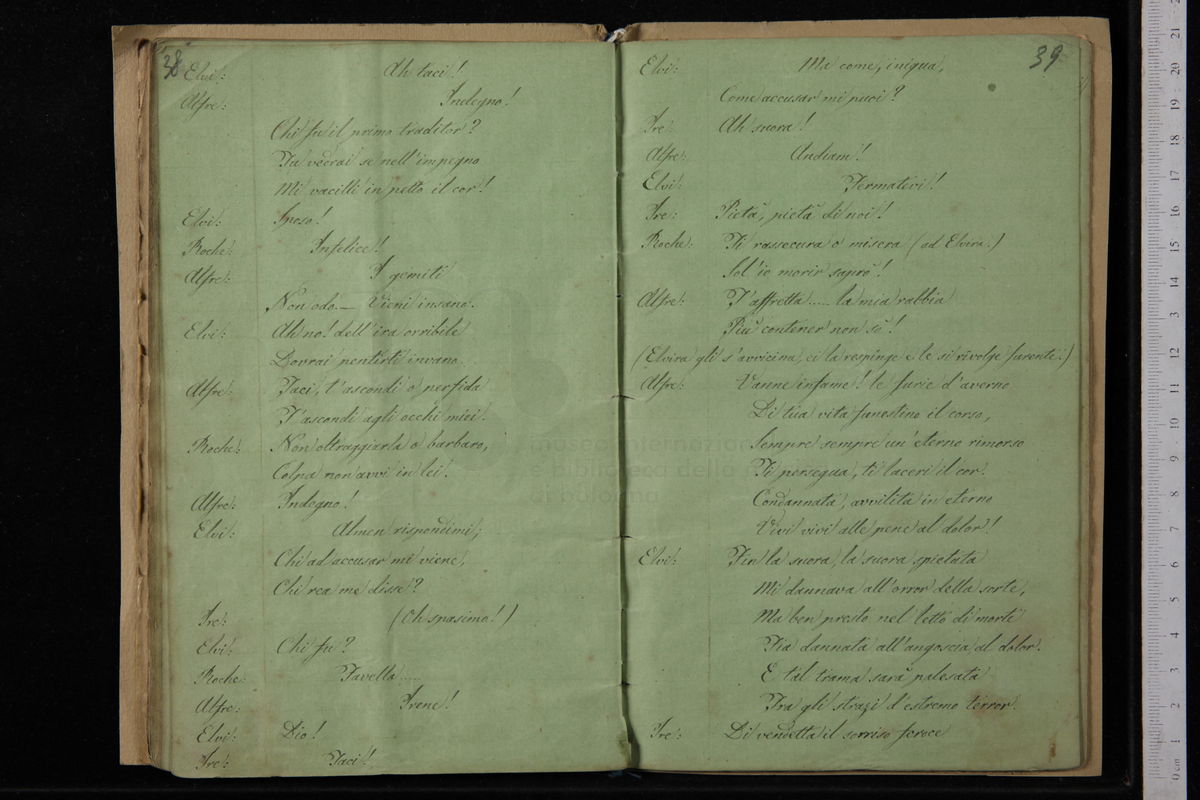 38
Elvi: Ah taci!
Alfre: Indegno!
Chi fu il primo traditor?
Tu vedrai se nell'impegno
Mi vacilli in petto il cor!
Elvi: Sposo!
Roche: Infelice!
Alfre: I gemiti
Non odo.— Vieni insano.
Elvi: Ah no! dell'ira orribile
Dovrai pentirti invano.
Alfre: Taci, t'ascondi o perfida
T'ascondi agli occhi miei.
Roche: Non oltraggiarla o barbaro,
Colpa non avvi in lei.
Alfre: Indegno!
Elvi: Almen rispondimi;
Chi ad accusar mi viene,
Chi rea me disse?
Ire: (Oh spasimo!)
Elvi: Chi fu?
Roche: Favella....
Alfre: Irene!
Elvi: Dio!
Ire: Taci!
39
Elvi: Ma come, iniqua,
Come accusar mi puoi?
Ire: Ah suora!
Alfre: Andiam!
Elvi: Fermatevi!
Ire: Pietà, pietà di noi!
Roche: Ti rassecura o misera (ad Elvira.)
Sol'io morir saprò!
Alfre: T'affretta.... la mia rabbia
Più contener non so!
(Elvira gli s'avvicina, ei la respinge e le si rivolge furente.)
Alfre: Vanne infame! le furie d'averno
Di tua vita funestino il corso,
Sempre sempre un'eterno rimorso
Ti persegua, ti laceri il cor.
Condannata, avvilita in eterno
Vivi vivi alle pene al dolor!
Elvi: Fin la suora, la suora spietata
Mi dannava all'orror della sorte,
Ma ben presto nel letto di morte
Fia dannata all'angoscia al dolor.
E tal trama sarà palesata
Fra gli strazi d'estremo terror.
Ire: Di vendetta il sorriso feroce
museo internazionale
biblioteca della
bologna